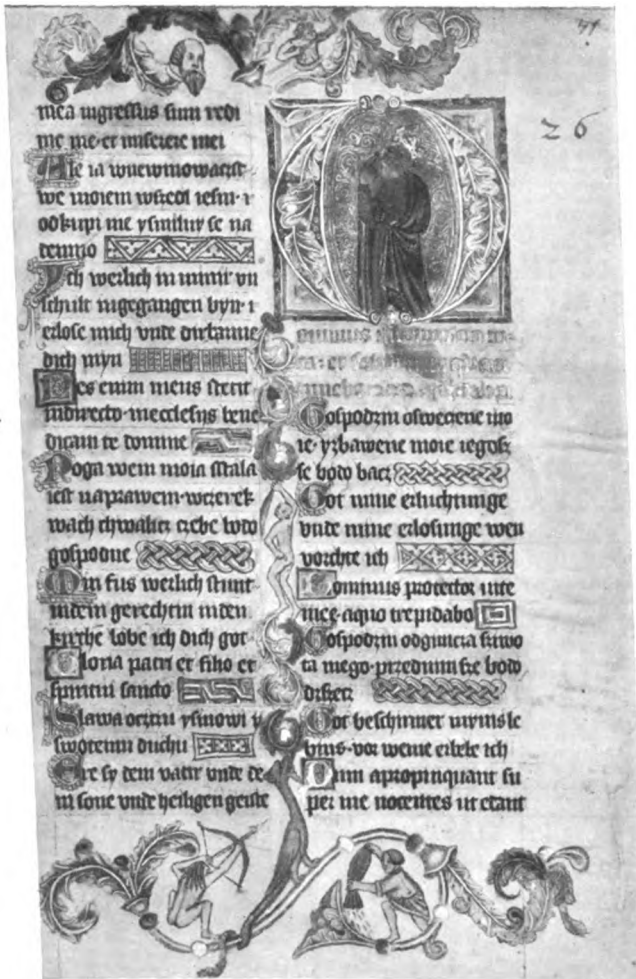 mea ingressus sum redi
me me·et miserere mei
Ale ia wnewinowacist
we moiem wszedl iesm·i
odkupi me ysmiluy se na
demno
Ich werlich in miner vn
schult ingegangen byn·i
erlose mich vnde dirbarme
dich myn
Pes enim meus stetit
indirecto·inecclesiis bene
dicam te domine
Noga wem moia stala
iest naprawem·wczerek
wach chwalicz czebe bodo
gospodne
Min fus werlich stunt
indem gerechtin inden
kirche lobe ich dich got
Gloria patri et filio et
spiritui sancto
Slawa oczczu ysinowi y
swotemu duchu
Ere sy dem vatir vnde de
m sone vnde heiligen geiste
26
Dominus
Gospodzin oswecene mo
ie·yzbawene moie iegosz
se bodo bacz
Got mine erluchtunge
vnde mine erlosunge wen
vorchte ich
Dominus protector uite
mee·aquo trepidabo
Gospodzin odgimcia sziwo
ta mego·przednimsze bodo
drszecz
Got beschirmer myns le
bins·vor weme erbebe ich
Dum apropinquant su
per me nocentes ut edant